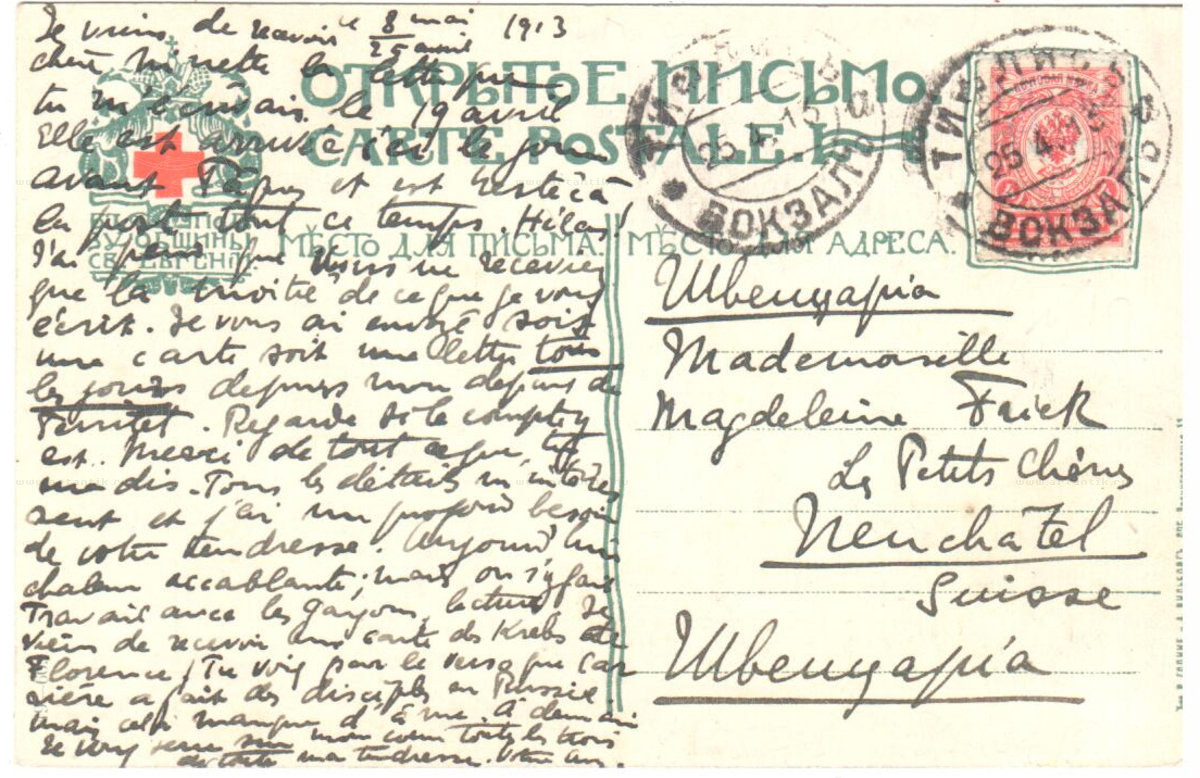 le 8 mai 1913
25 avril
Je viens de recevoir
chère Minette la lettre que
tu m'écrivais le 19 avril
Elle est arrivée ici le jour
avant Pâques et est restée à
la poste tout ce temps. Hélas!
J'ai peur que vous ne receviez
que la moitié de ce que je vous
écris. Je vous ai envoyé soit
une carte soit une lettre tous
les jours depuis mon départ de
Territet. Regarde si le compte y
est. Merci de tout ce que tu
me dis. Tous les détails m'intéres
sent et j'ai un profond besoin
de votre tendresse. Aujourd'hui
chaleur accablante; mais on s'y fait
Travail avec les garçons, lecture. Je
viens de recevoir une carte des Krebs de
Florence! Tu vois par le verso que Car
rière a fait des disciples en Russie
mais cela manque d'âme. A demain
Je vous serre sur mon cœur toutes les trois
de toute ma tendresse. Votre
ОТКРЫТОЕ ПИСЬМО
CARTE POSTALE.
ВЪ ПОЛЬЗУ ОБЩИНЫ
СВ. ЕВГЕНІИ.
МѢСТО ДЛЯ ПИСЬМА.
МѢСТО ДЛЯ АДРЕСА.
ТИФЛИСЪ
25.4.13
ВОКЗАЛЪ
ТИФЛИСЪ
25.4.13
ВОКЗАЛЪ
Швейцарія
Mademoiselle
Magdeleine Frick
Les Petits Chênes
Neuchâtel
Suisse
Швейцарія